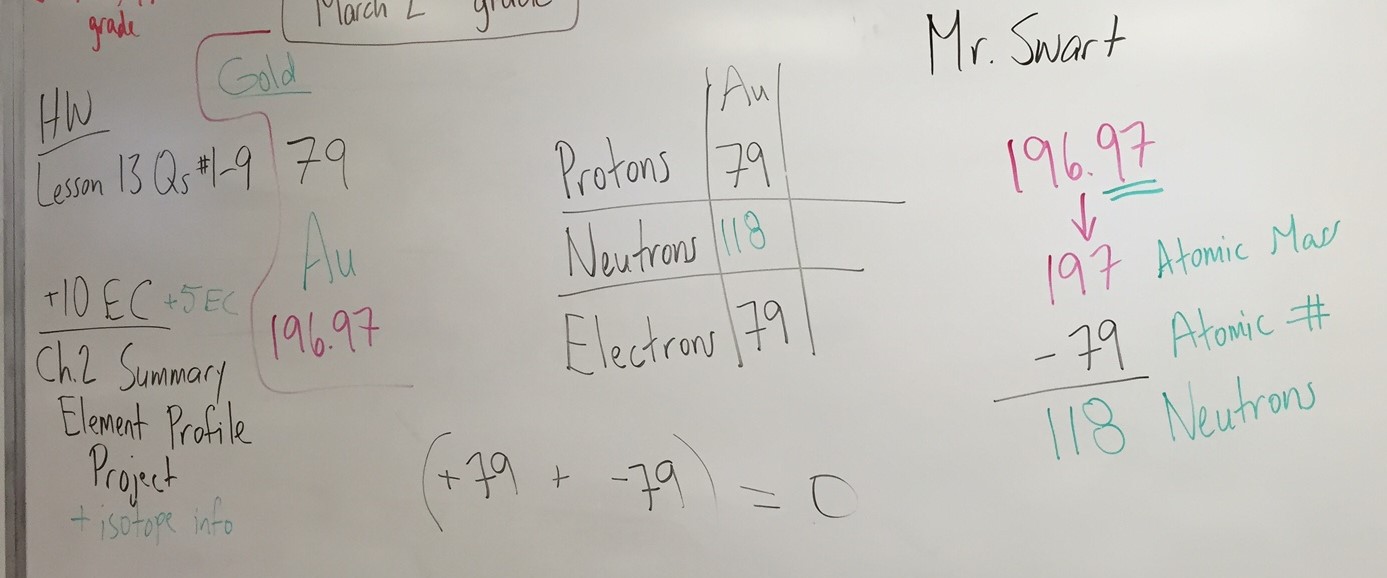 grade
March 2 grade
Mr. Swart
Gold
HW
Lesson 13 Qs #1-9
79
Au
196.97
+10 EC +5 EC
Ch.2 Summary
Element Profile
Project
+ isotope info
Au
Protons 79
Neutrons 118
Electrons 79
(+79 + -79) = 0
196.97
↓
197 Atomic Mass
- 79 Atomic #
118 Neutrons